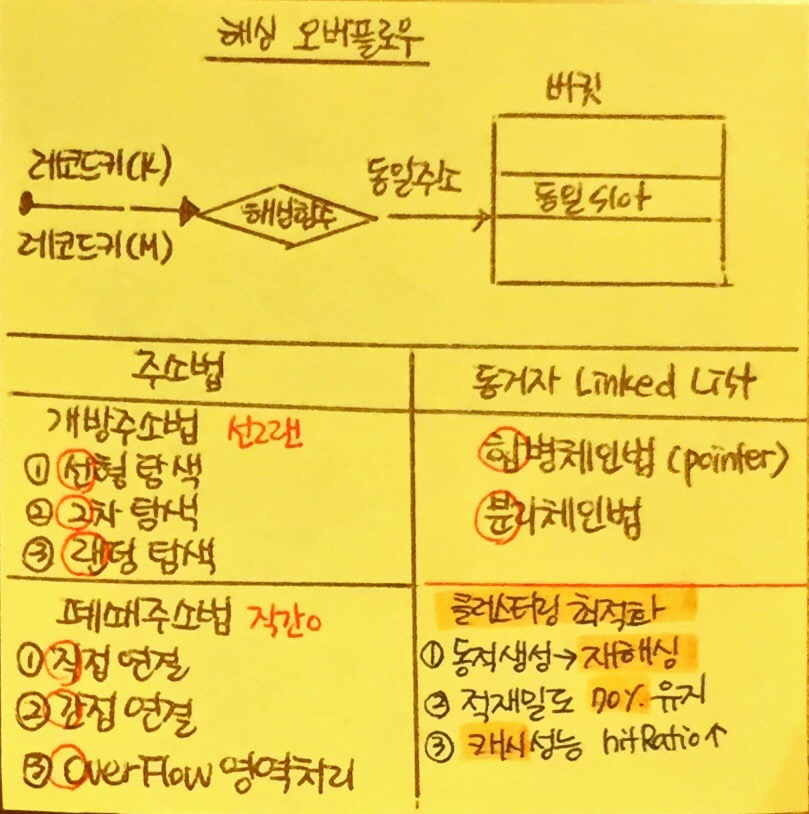 해싱 오버플로우
버킷
레코드키(K)
레코드키(M)
해싱함수
동일주소
동일의아
주소법
개방주소법 선2랜
① 선형탐색
② 2차 탐색
③ 랜덤 탐색
폐쇄주소법 직간O
① 직접 연결
② 간접 연결
③ OverFlow 영역처리
동거자 Linked List
합병체인법 (pointer)
분리체인법
클러스터링 최적화
① 동적생성→재해싱
② 적재밀도 70% 유지
③ 캐시성능 hitRatio↑